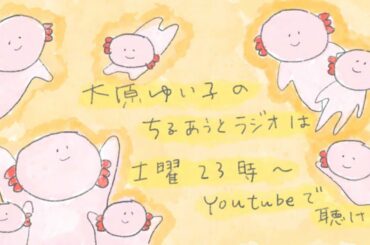 木原ゆい子の
ちるあうとラジオは
土曜23時〜
Youtubeで
聴け